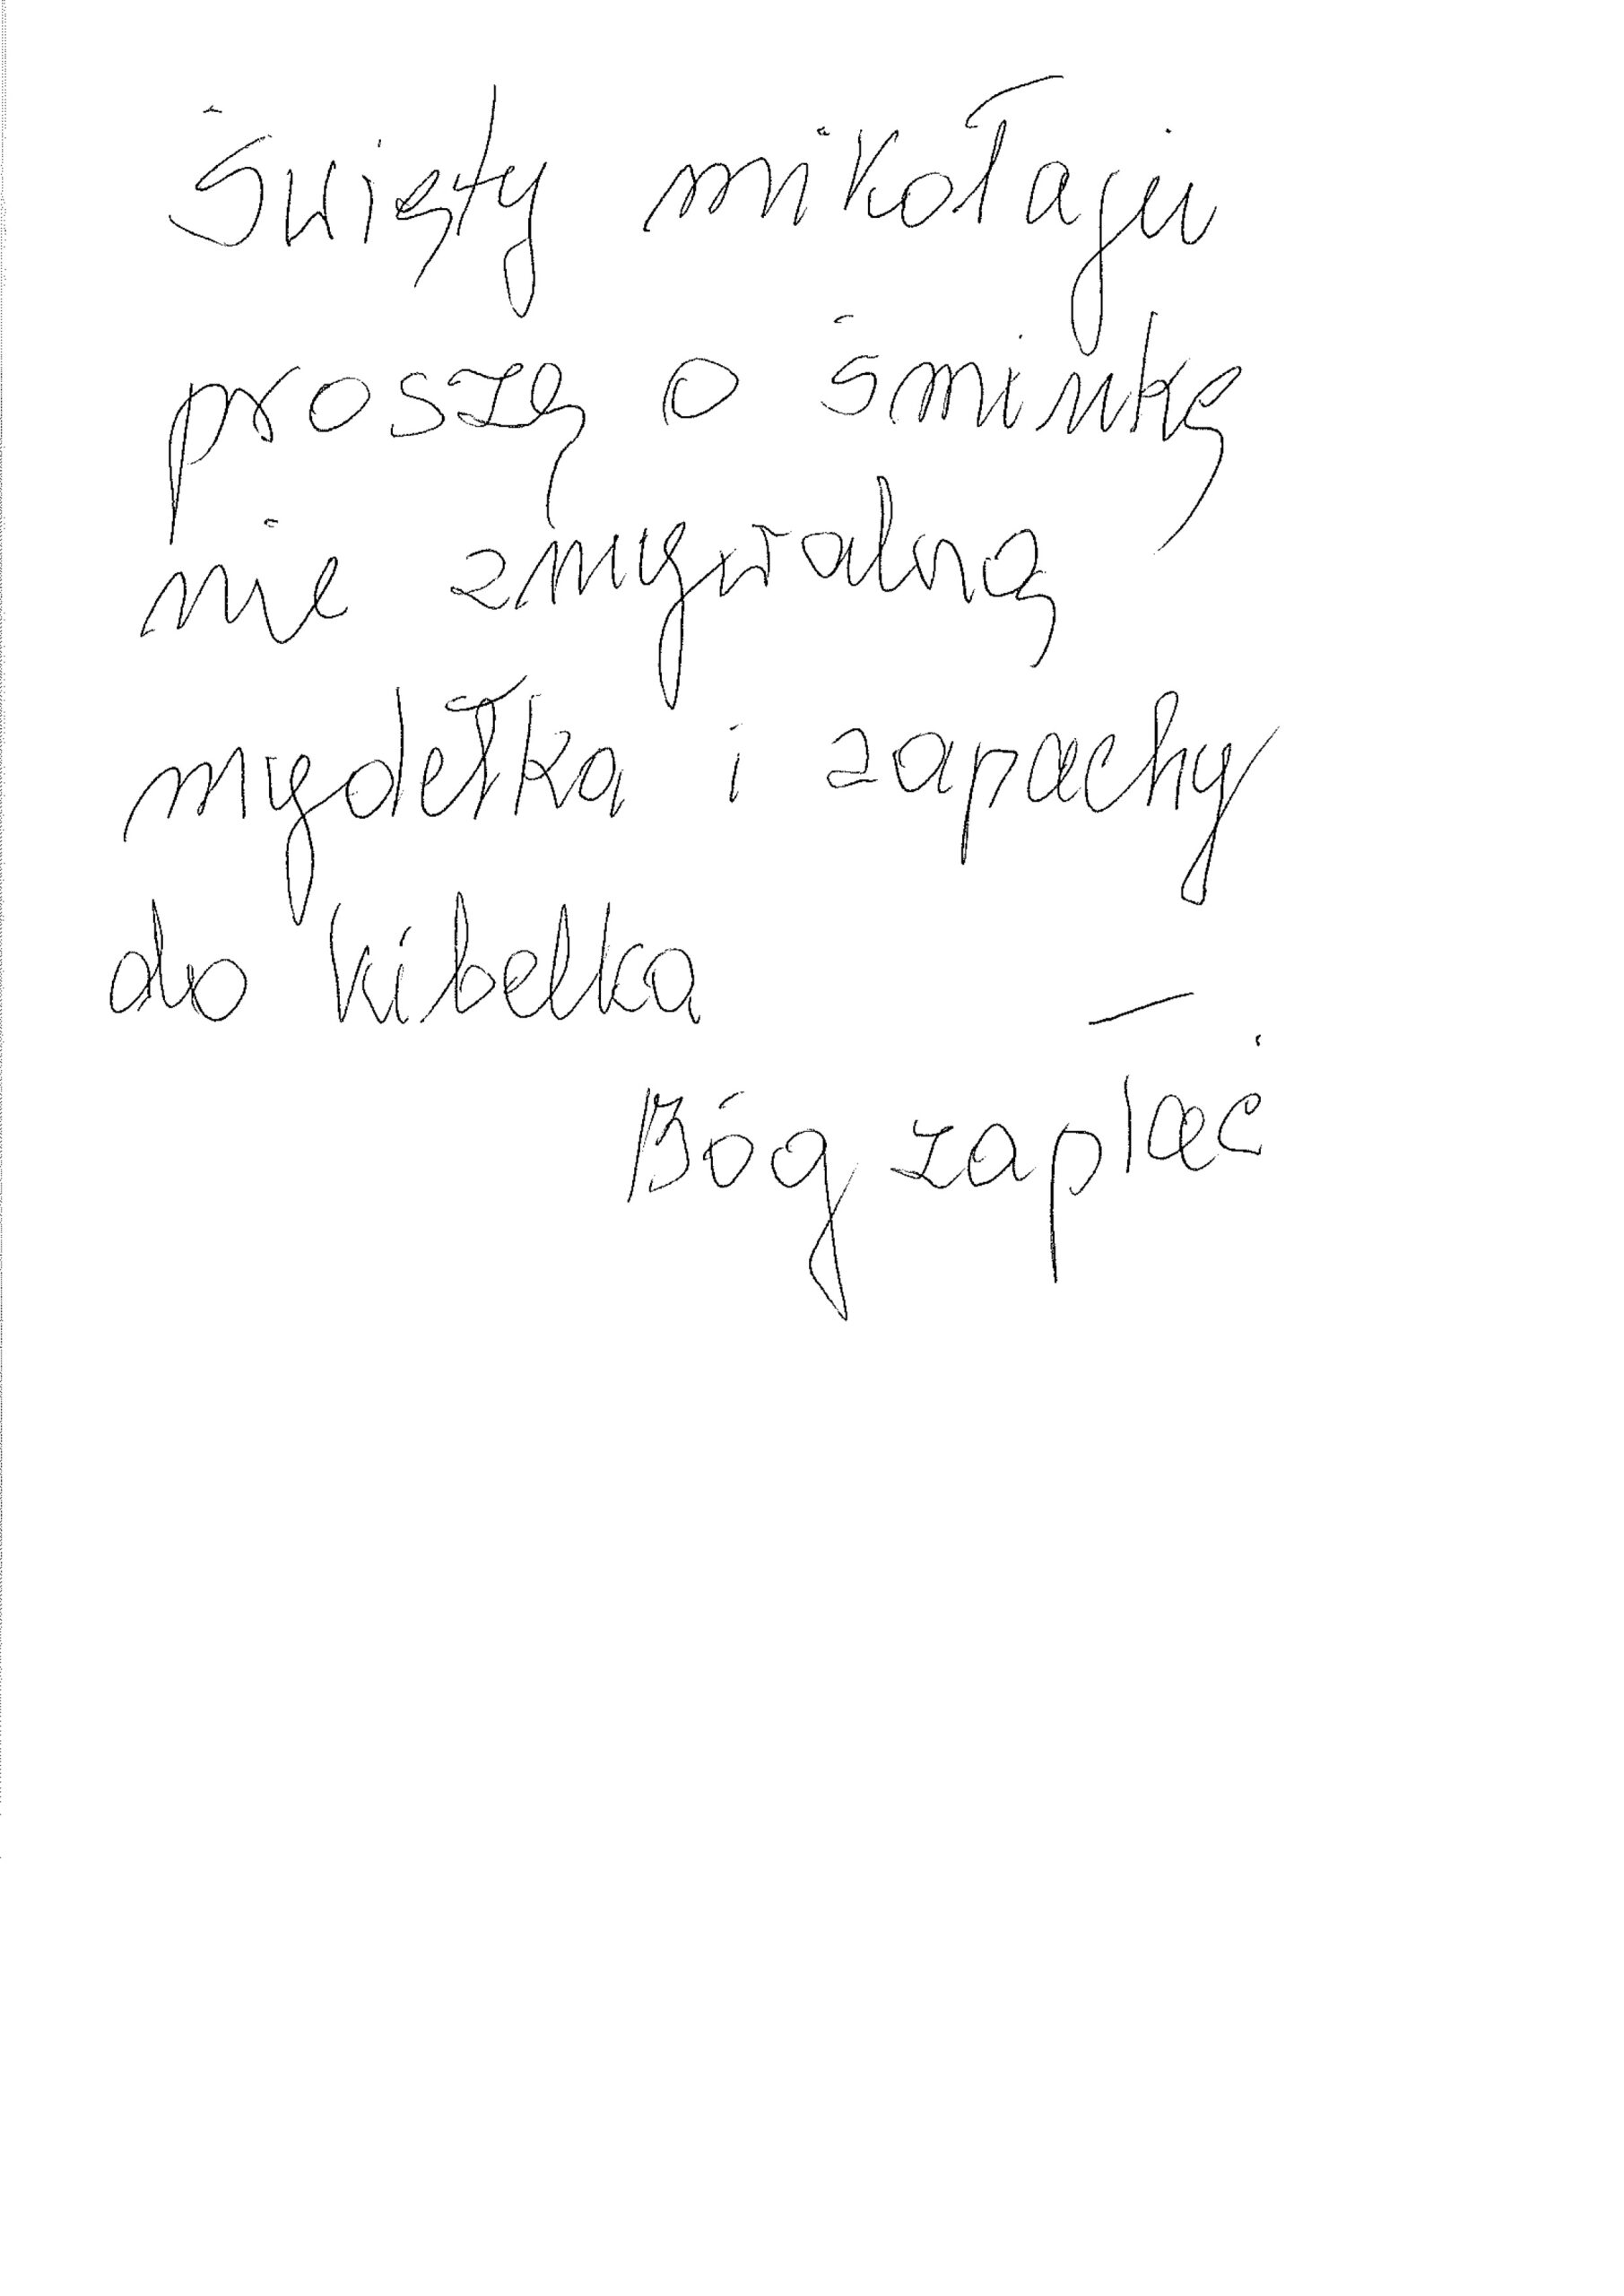 Święty mikołaju
proszę o śminkę
nie zmywalną
mydełka i zapachy
do kibelka
Bóg zapłać